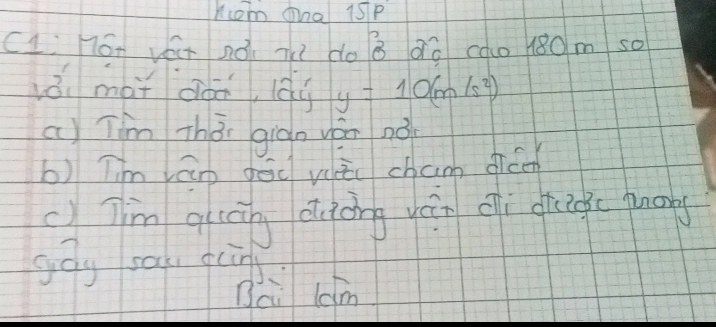 Kiểm tra 15P
C1: Một vật rơi tự do ở độ cao 180m so
với mặt đất, lấy g = 10(m/s²)
a) Tìm thời gian vật rơi
b) Tìm vận tốc vừa chạm đất
c) Tìm quãng đường vật đi được trong
giây sau cùng.
Bài làm